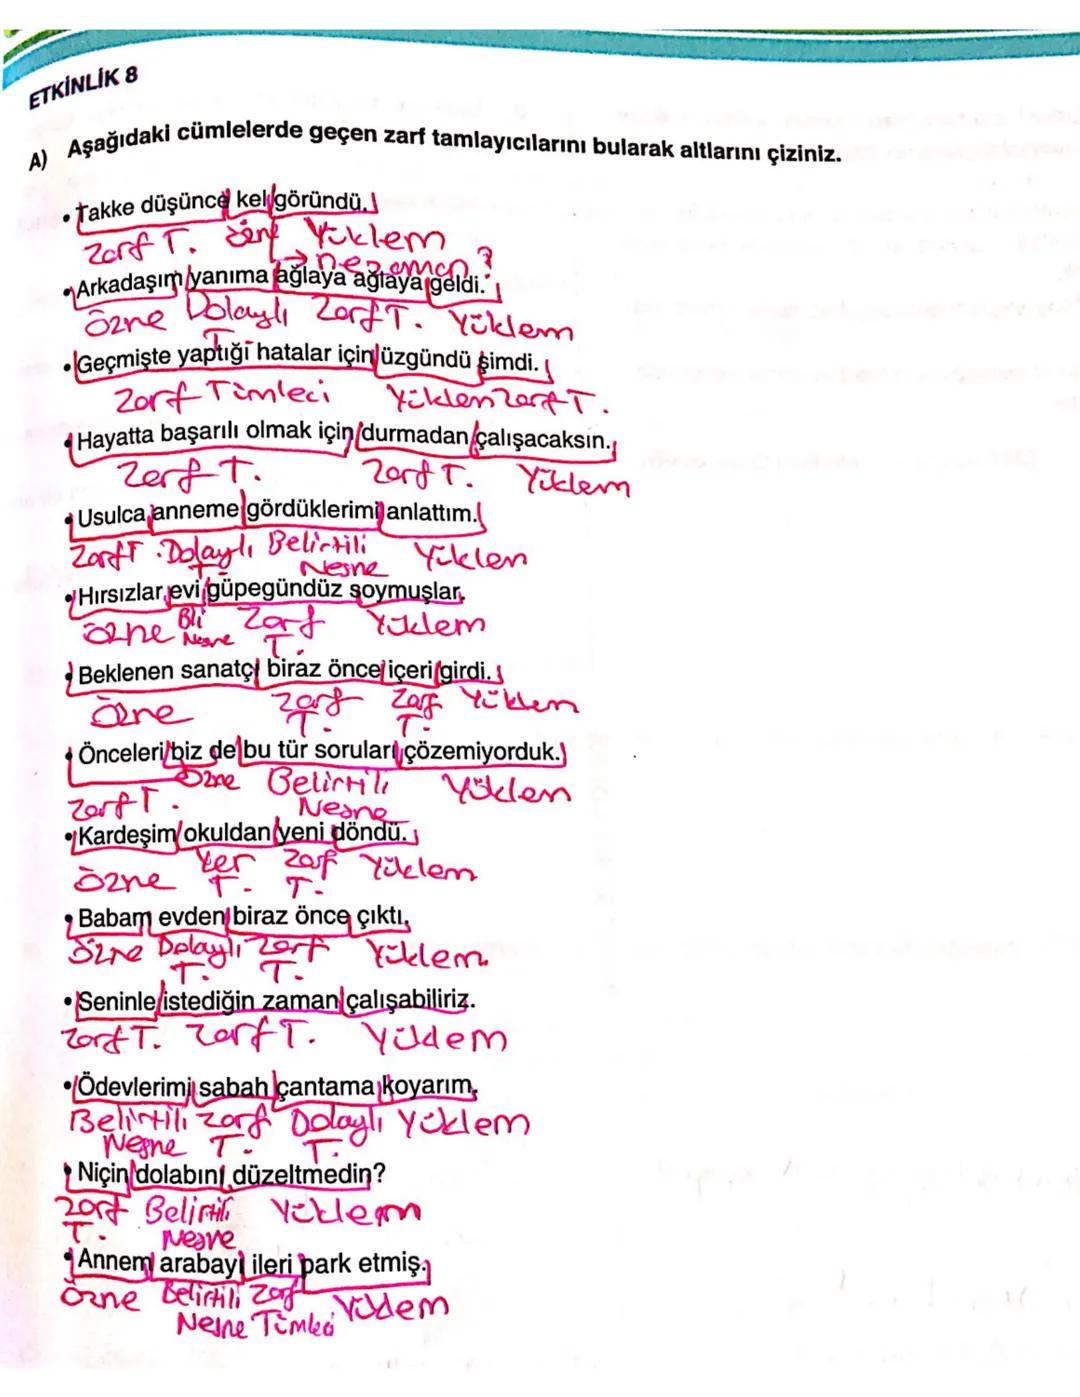 ETKİNLİK 8
A) Aşağıdaki cümlelerde geçen zarf tamlayıcılarını bularak altlarını çiziniz.
• Takke düşünce kel göründü.
Zarf T. özne Yüklem
→ nezaman?
• Arkadaşım yanıma ağlaya ağlaya geldi.
Özne Dolaylı T. Zarf T. Yüklem
• Geçmişte yaptığı hatalar için üzgündü şimdi.
Zarf Tümleci Yüklem Zarf T.
• Hayatta başarılı olmak için durmadan çalışacaksın.
Zarf T. Zarf T. Yüklem
• Usulca anneme gördüklerimi anlattım.
Zarf T. Dolaylı T. Belirtili Nesne Yüklem
• Hırsızlar evi güpegündüz soymuşlar.
Özne Bli Nesne Zarf T. Yüklem
• Beklenen sanatçı biraz önce içeri girdi.
Özne Zarf T. Zarf T. Yüklem
• Önceleri biz de bu tür soruları çözemiyorduk.
Zarf T. Özne Belirtili Nesne Yüklem
• Kardeşim okuldan yeni döndü.
Özne Yer T. Zarf T. Yüklem
• Babam evden biraz önce çıktı.
Özne Dolaylı T. Zarf T. Yüklem
• Seninle istediğin zaman çalışabiliriz.
Zarf T. Zarf T. Yüklem
• Ödevlerimi sabah çantama koyarım.
Belirtili Nesne Zarf T. Dolaylı T. Yüklem
• Niçin dolabını düzeltmedin?
Zarf T. Belirtili Nesne Yüklem
• Annem arabayı ileri park etmiş.
Özne Belirtili Nesne Zarf Tümleci Yüklem